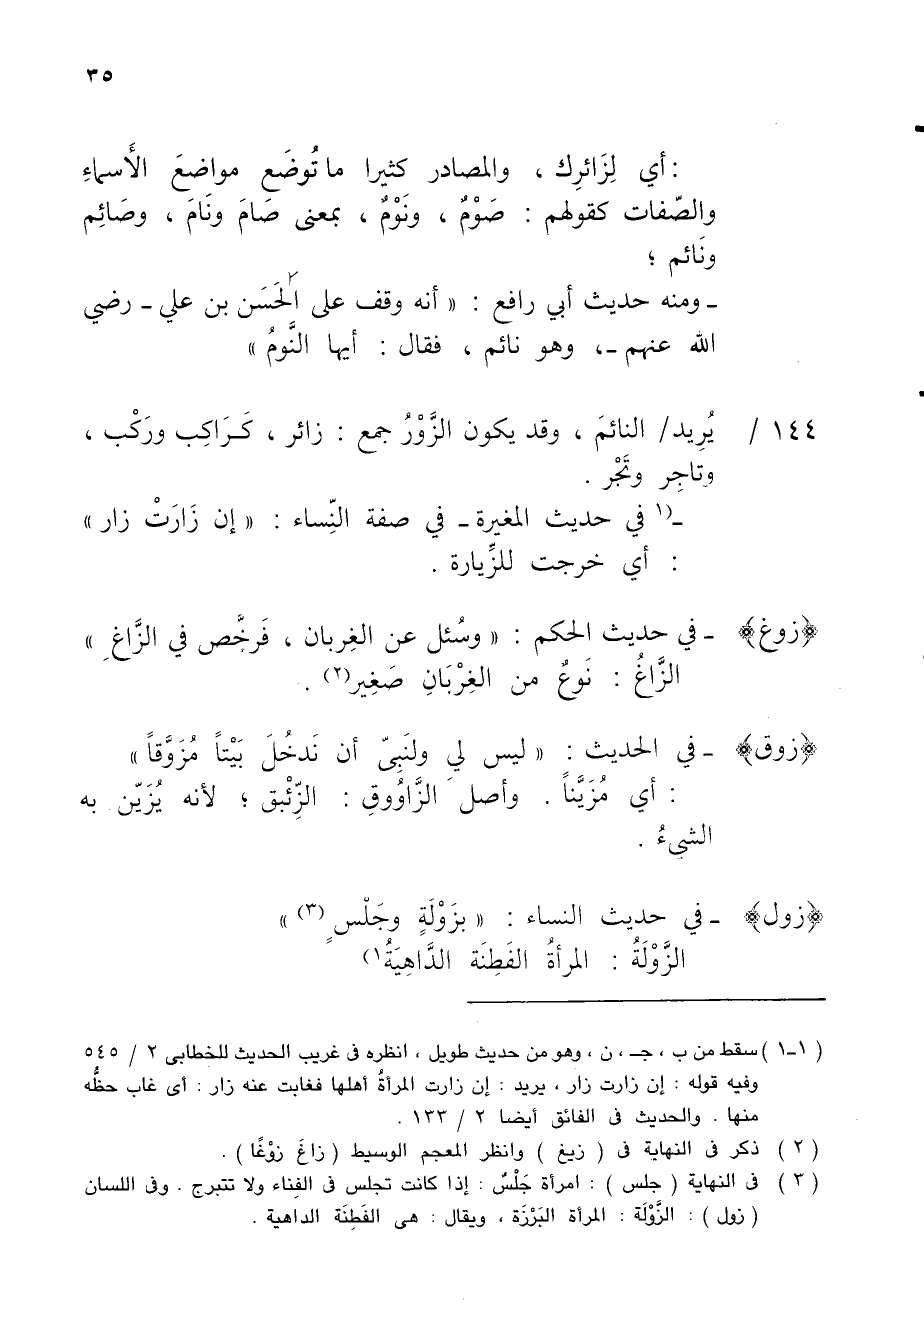 ٣٥
: أي لِزَائرِك ، والمصادر كثيرا ما تُوضَع مواضعَ الأَسماءِ
والصِّفات كقولهم : صَوْمٌ ، ونَوْمٌ ، بمعنى صَامَ ونَامَ ، وصَائِم
ونَائم ؛
ـ ومنه حديث أبي رافع : « أنه وقف على الحَسَن بن علي ـ رضي
الله عنهم ـ، وهو نائم ، فقال : أيها النَّومُ »
١٤٤ / يُرِيد/ النائمَ ، وقد يكون الزَّوْرُ جمع : زائر ، كَـرَاكِب ورَكْب ،
وتاجِر وتَجْر .
ـ(١ في حديث المغيرة ـ في صفة النِّساء : « إن زَارَتْ زار »
: أي خرجت للزِّيارة .
﴿زوغ﴾ ـ في حديث الحكم : « وسُئل عن الغِربان ، فَرخَّص في الزَّاغِ »
الزَّاغُ : نَوعٌ من الغِرْبَانِ صَغِير(٢) .
﴿زوق﴾ ـ في الحديث : « ليس لي ولنَبِيّ أن نَدخُلَ بَيْتاً مُزَوَّقاً »
: أي مُزَيَّناً . وأصل الزَّاوُوقِ : الزِّئْبق ؛ لأنه يُزَيّن به
الشيءُ .
﴿زول﴾ ـ في حديث النساء : « بزَوْلَةٍ وجَلْسٍ (٣) »
الزَّوْلَةُ : المرأةُ الفَطِنَة الدَّاهِيَةُ١)
( ١ـ١ ) سقط من ب ، جـ ، ن ، وهو من حديث طويل ، انظره فى غريب الحديث للخطابى ٢ / ٥٤٥
وفيه قوله : إن زارت زار ، يريد : إن زارت المرأةُ أهلها فغابت عنه زار : أى غاب حظُّه
منها . والحديث فى الفائق أيضا ٢ / ١٣٣ .
( ٢ ) ذكر فى النهاية فى ( زيغ ) وانظر المعجم الوسيط ( زاغَ زوْغًا ) .
( ٣ ) فى النهاية ( جلس ) : امرأة جَلْسٌ : إذا كانت تجلس فى الفِناء ولا تتبرج . وفى اللسان
( زول ) : الزَّوْلَة : المرأة البَرْزَة ، ويقال : هى الفَطِنَة الداهية .